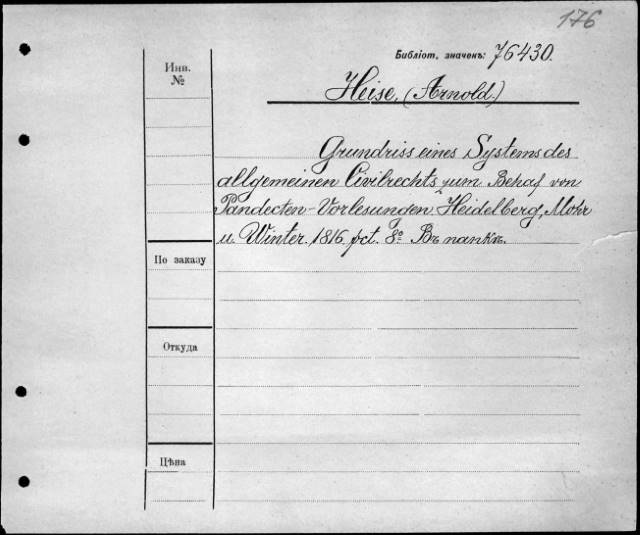 176
Библіот. значенъ: 76430.
Инв.
№
Heise, (Arnold.)
Grundriss eines Systems des
allgemeinen Civilrechts zum Behaf von
Pandecten-Vorlesungen. Heidelberg, Mohr
u. Winter. 1816. 8º Въ папкѣ.
По заказу
Откуда
Цѣна